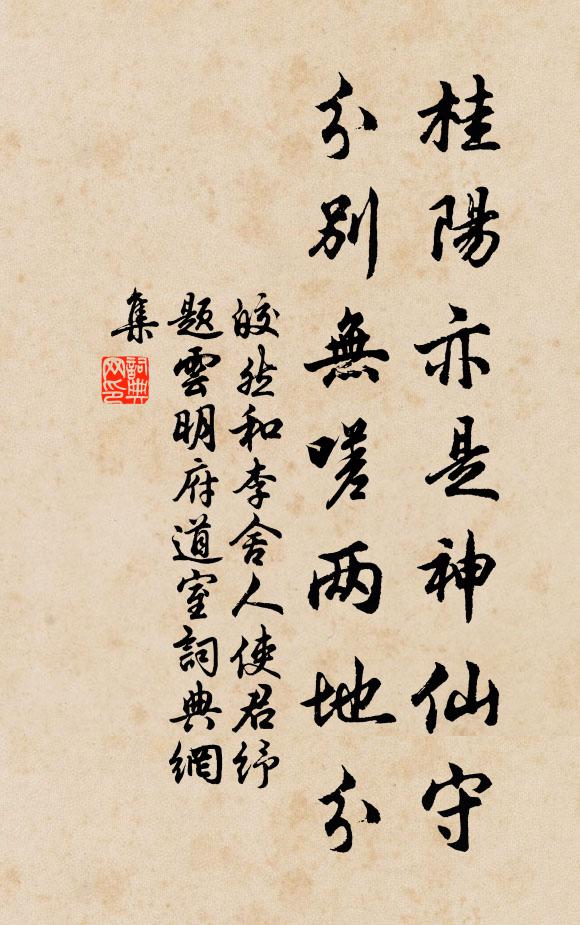 桂陽亦是神仙守
分別無嗟两地分
皎然和李舍人使君紓
題雲明府道室詞典網
集
詞典
网印